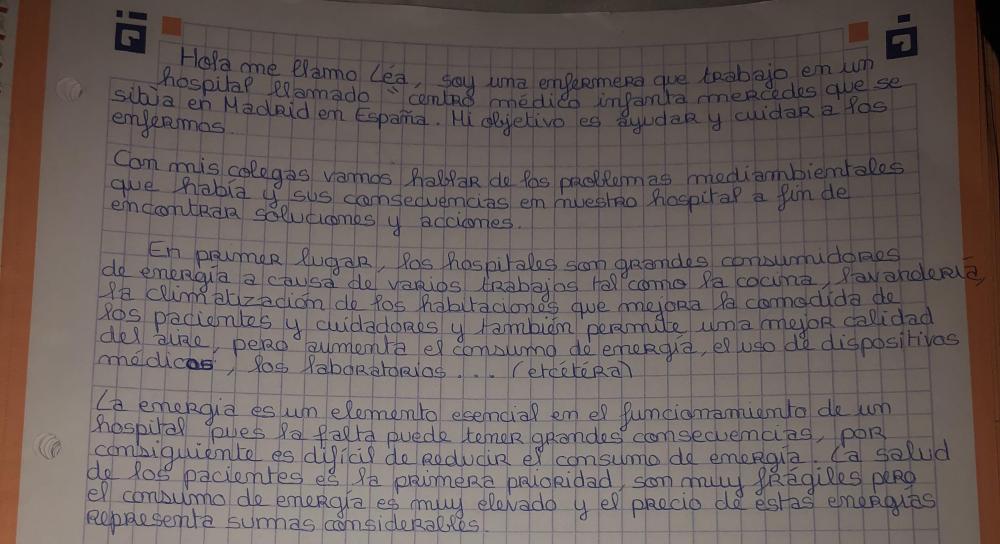 Hola me llamo Léa, soy una enfermera que trabajo en un
hospital llamado "centro médico infanta mercedes que se
sitùa en Madrid en España. Mi objetivo es ayudar y cuidar a los
enfermos.
Con mis colegas vamos hablar de los problemas mediambientales
que había y sus consecuencias en nuestro hospital a fin de
encontrar soluciones y acciones.
En primer lugar, los hospitales son grandes consumidores
de energía a causa de varios trabajos tal como la cocina, lavandería,
la climatización de los habitaciones que mejora la comodida de
los pacientes y cuidadores y también permite una mejor calidad
del aire, pero aumenta el consumo de energía, el uso de dispositivos
médicos, los laboratorios... (etcétéra)
La energia es un elemento esencial en el funcionamiento de un
hospital pues la falta puede tener grandes consecuencias, por
consiguiente es difícil de reducir el consumo de energía. La salud
de los pacientes es la primera prioridad, son muy frágiles pero
el consumo de energía es muy elevado y el precio de estas energías
representa sumas considerables.